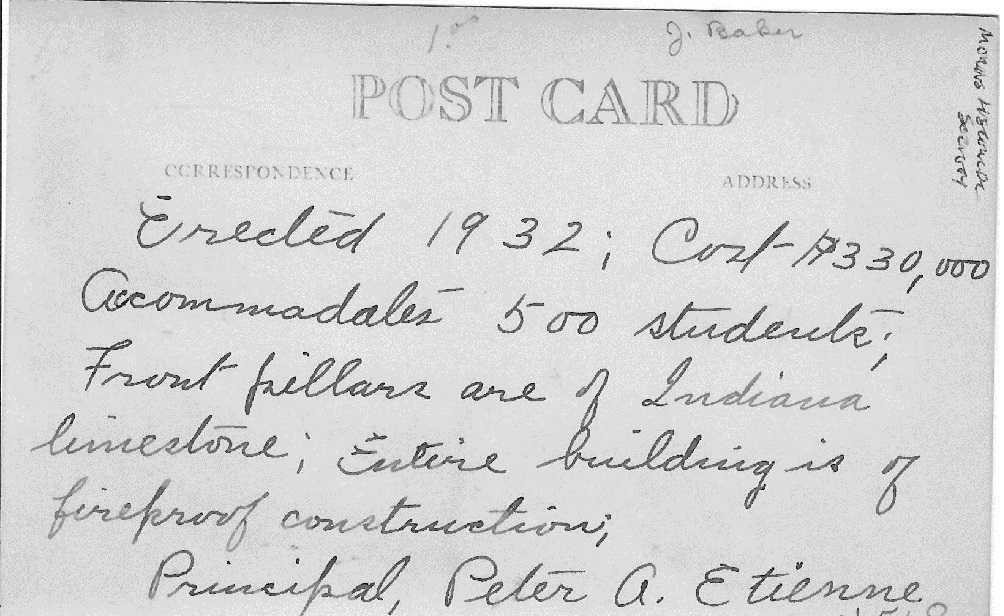 J. Baker
POST CARD
CORRESPONDENCE
ADDRESS
Erected 1932; Cost $330,000
Accommadates 500 students;
Front pillars are of Indiana
limestone; Entire building is of
fireproof construction;
Principal, Peter A. Etienne
Society